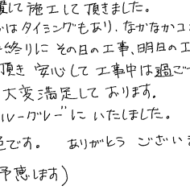 置して施工して頂きました。
はタイミングもあり、なかなかコ
終りに その日の工事、明日の工
頂き 安心して 工事中は過ご
大変満足しております。
ルーグレーにいたしました。
色です。 ありがとう ござい
予恵します)